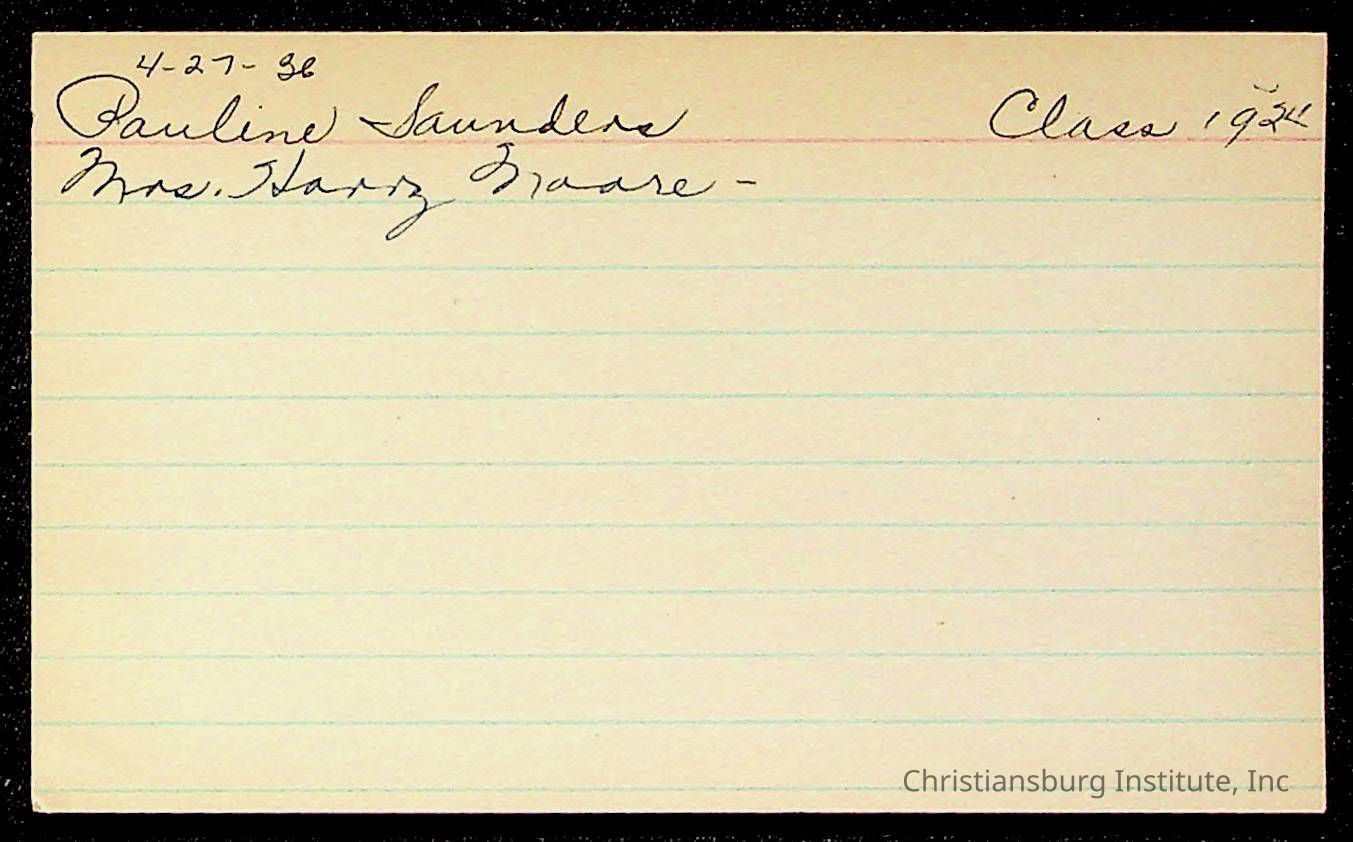 4-27-36
Pauline Saunders Class 1924
Mrs. Harry Moore -
Christiansburg Institute, Inc